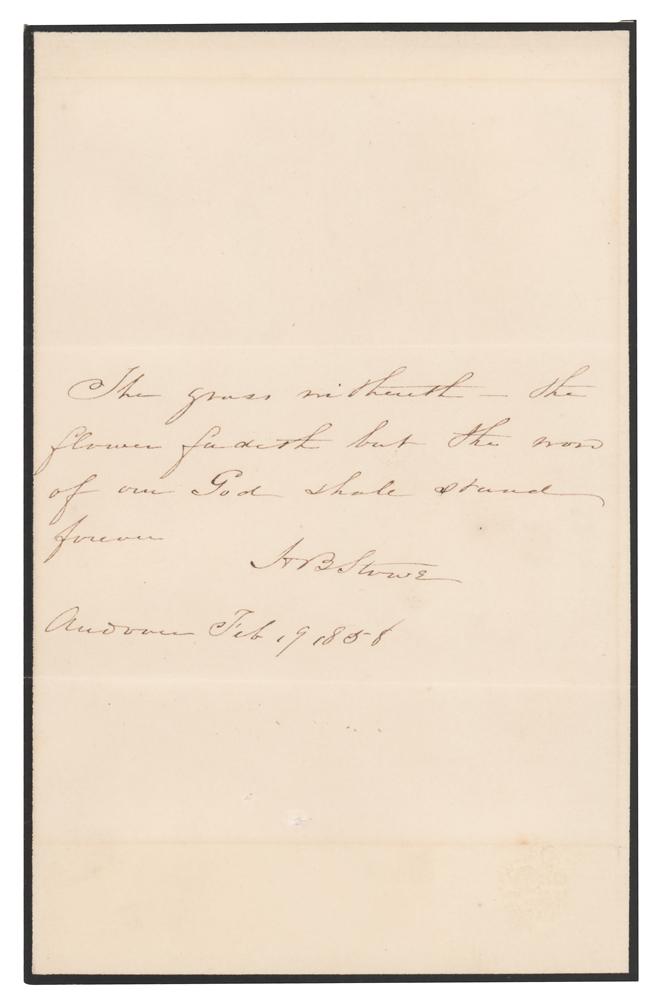 The grass withereth — the
flower fadeth but the word
of our God shall stand
forever
H B Stowe
Andover Feb 19 1858